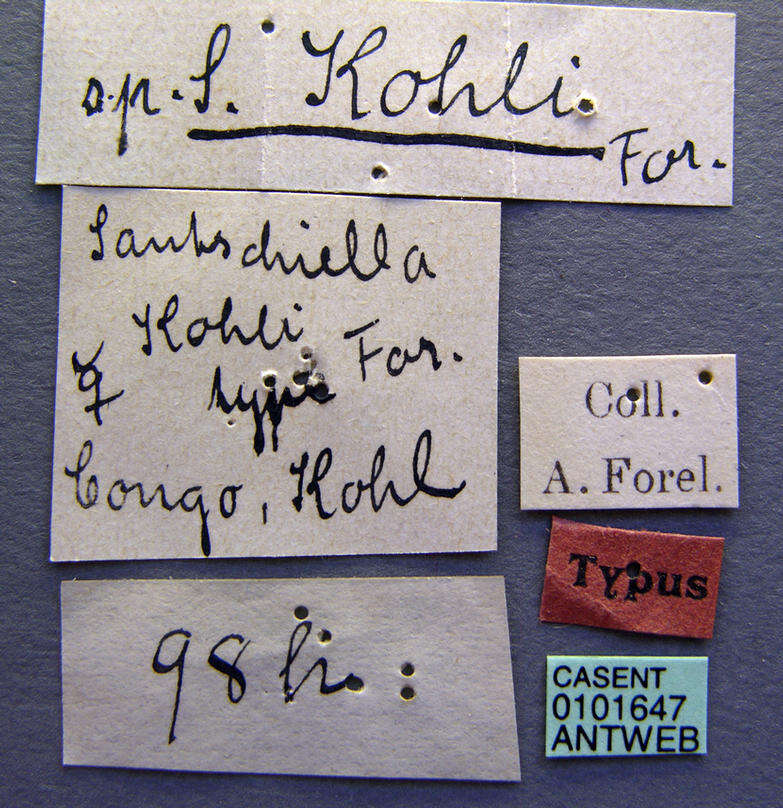 sp. S. Kohli.
For.
Santschiella
Kohli
☿ type For.
Congo, Kohl
98 h.
Coll.
A. Forel.
Typus
CASENT
0101647
ANTWEB